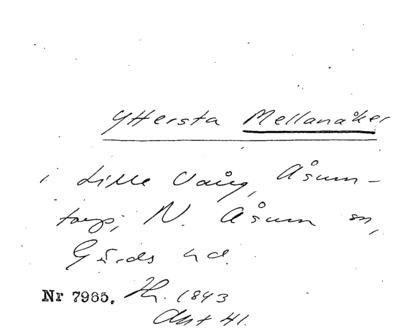 Yttersta Mellanåker
i Lille Vång, Åsum-
torp, N. Åsum sn,
Gärds hd.
Nr 7965. H. 1843
Akt 41.